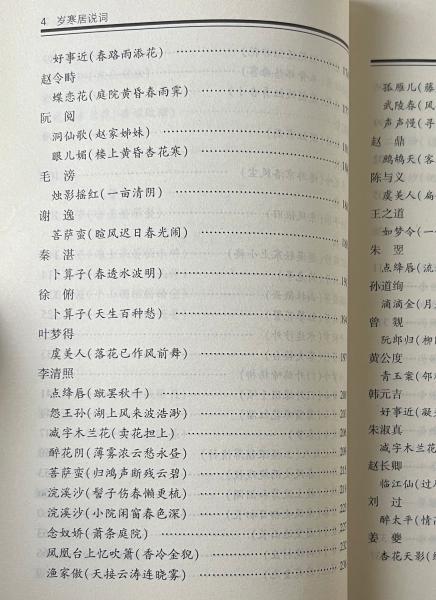 4 岁寒居说词
好事近(春路雨添花)
赵令畤
蝶恋花(庭院黄昏春雨霁)
阮 阅
洞仙歌(赵家姊妹)
眼儿媚(楼上黄昏杏花寒)
毛 滂
烛影摇红(一亩清阴)
谢 逸
菩萨蛮(暄风迟日春光闹)
秦 湛
卜算子(春透水波明)
徐 俯
卜算子(天生百种愁)
叶梦得
虞美人(落花已作风前舞)
李清照
点绛唇(蹴罢秋千)
怨王孙(湖上风来波浩渺)
减字木兰花(卖花担上)
醉花阴(薄雾浓云愁永昼)
菩萨蛮(归鸿声断残云碧)
浣溪沙(髻子伤春懒更梳)
浣溪沙(小院闲窗春色深)
念奴娇(萧条庭院)
凤凰台上忆吹箫(香冷金猊)
渔家傲(天接云涛连晓雾)
孤雁儿(藤
武陵春(风
声声慢(寻
赵 鼎
鹧鸪天(客
陈与义
虞美人(扁
王之道
如梦令(一
朱 翌
点绛唇(流
孙道绚
滴滴金(月
曾 觌
阮郎归(柳
黄公度
青玉案(邻
韩元吉
好事近(凝
朱淑真
减字木兰花
赵长卿
临江仙(过
刘 过
醉太平(情
姜 夔
杏花天影(